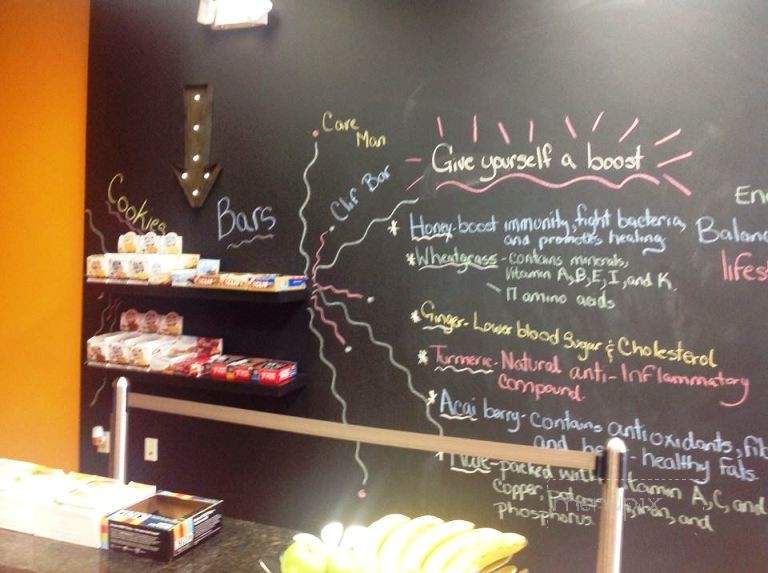 Cave
Man
Clif Bar
Cookies
Bars
Give yourself a boost
* Honey-boost immunity, fight bacteria,
and promotes healing
* Wheatgrass - contains minerals,
Vitamin A, B, E, I, and K.
17 amino acids
* Ginger - Lower blood Sugar & Cholesterol
* Turmeric - Natural anti-Inflammatory
compound.
* Acai berry - contains antioxidants, fib
and healthy fats
packed with tamin A, C, and
copper,
phosphorus iron, and
Balanc
lifes